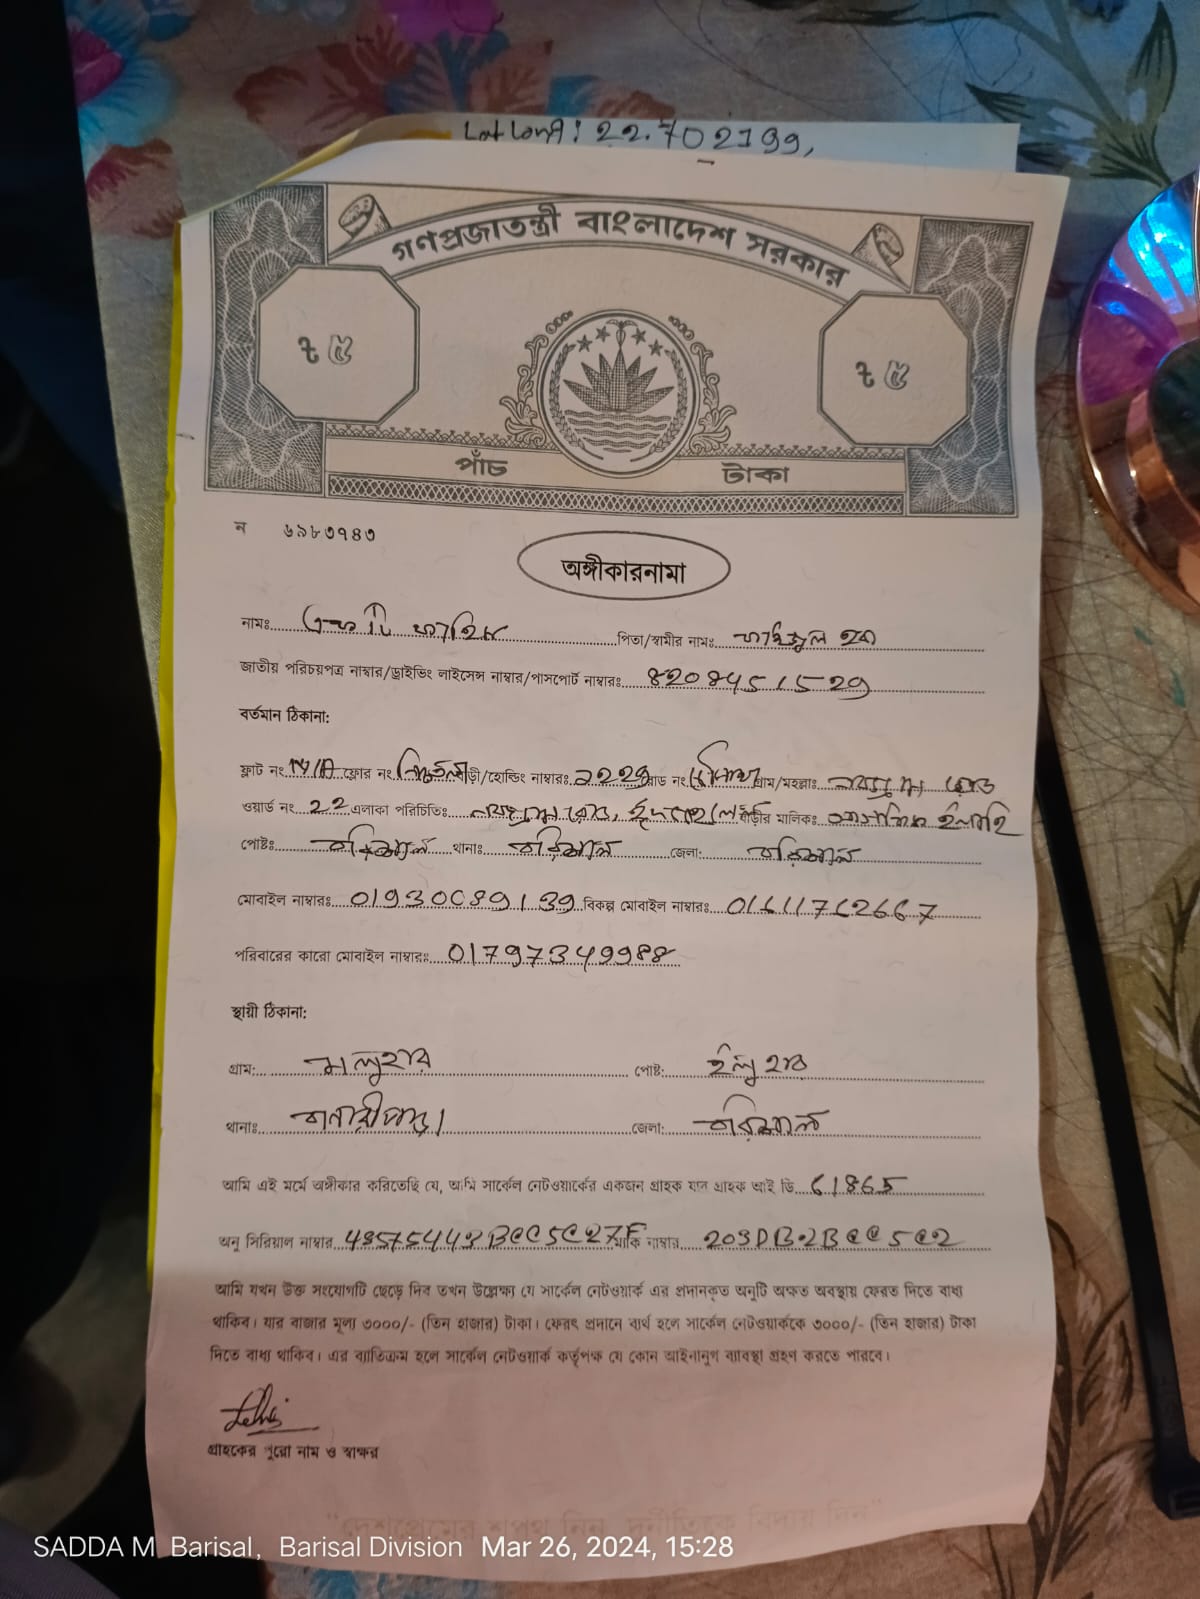 Lat Long: 22.702199,
গণপ্রজাতন্ত্রী বাংলাদেশ সরকার
৳ ৫
৳ ৫
পাঁচ টাকা
ন ৬৯৮৩৭৪৩
অঙ্গীকারনামা
নামঃ পিতা/স্বামীর নামঃ হক
জাতীয় পরিচয়পত্র নাম্বার/ড্রাইভিং লাইসেন্স নাম্বার/পাসপোর্ট নাম্বারঃ 8208451529
বর্তমান ঠিকানা:
ফ্লাট নং N/A ফ্লোর নং বাড়ী/হোল্ডিং নাম্বারঃ রোড নং গ্রাম/মহল্লাঃ রোড
ওয়ার্ড নং 22 এলাকা পরিচিতিঃ রোড, বাড়ীর মালিকঃ
পোষ্টঃ বরিশাল থানাঃ বরিশাল জেলা: বরিশাল
মোবাইল নাম্বারঃ 01930089139 বিকল্প মোবাইল নাম্বারঃ 01611762667
পরিবারের কারো মোবাইল নাম্বারঃ 01797349988
স্থায়ী ঠিকানা:
গ্রাম: মলুহার পোষ্ট: ইলুহার
থানাঃ বানারীপাড়া জেলা: বরিশাল
আমি এই মর্মে অঙ্গীকার করিতেছি যে, আমি সার্কেল নেটওয়ার্কের একজন গ্রাহক যার গ্রাহক আই ডি 61865
অনু সিরিয়াল নাম্বার ম্যাক নাম্বার
আমি যখন উক্ত সংযোগটি ছেড়ে দিব তখন উল্লেক্ষ্য যে সার্কেল নেটওয়ার্ক এর প্রদানকৃত অনুটি অক্ষত অবস্থায় ফেরত দিতে বাধ্য
থাকিব। যার বাজার মূল্য ৩০০০/- (তিন হাজার) টাকা। ফেরৎ প্রদানে ব্যর্থ হলে সার্কেল নেটওয়ার্ককে ৩০০০/- (তিন হাজার) টাকা
দিতে বাধ্য থাকিব। এর ব্যাতিক্রম হলে সার্কেল নেটওয়ার্ক কর্তৃপক্ষ যে কোন আইনানুগ ব্যাবস্থা গ্রহণ করতে পারবে।
গ্রাহকের পুরো নাম ও স্বাক্ষর
"দেশপ্রেমের শপথ নিন, দুর্নীতিকে বিদায় দিন"
SADDA M Barisal, Barisal Division Mar 26, 2024, 15:28